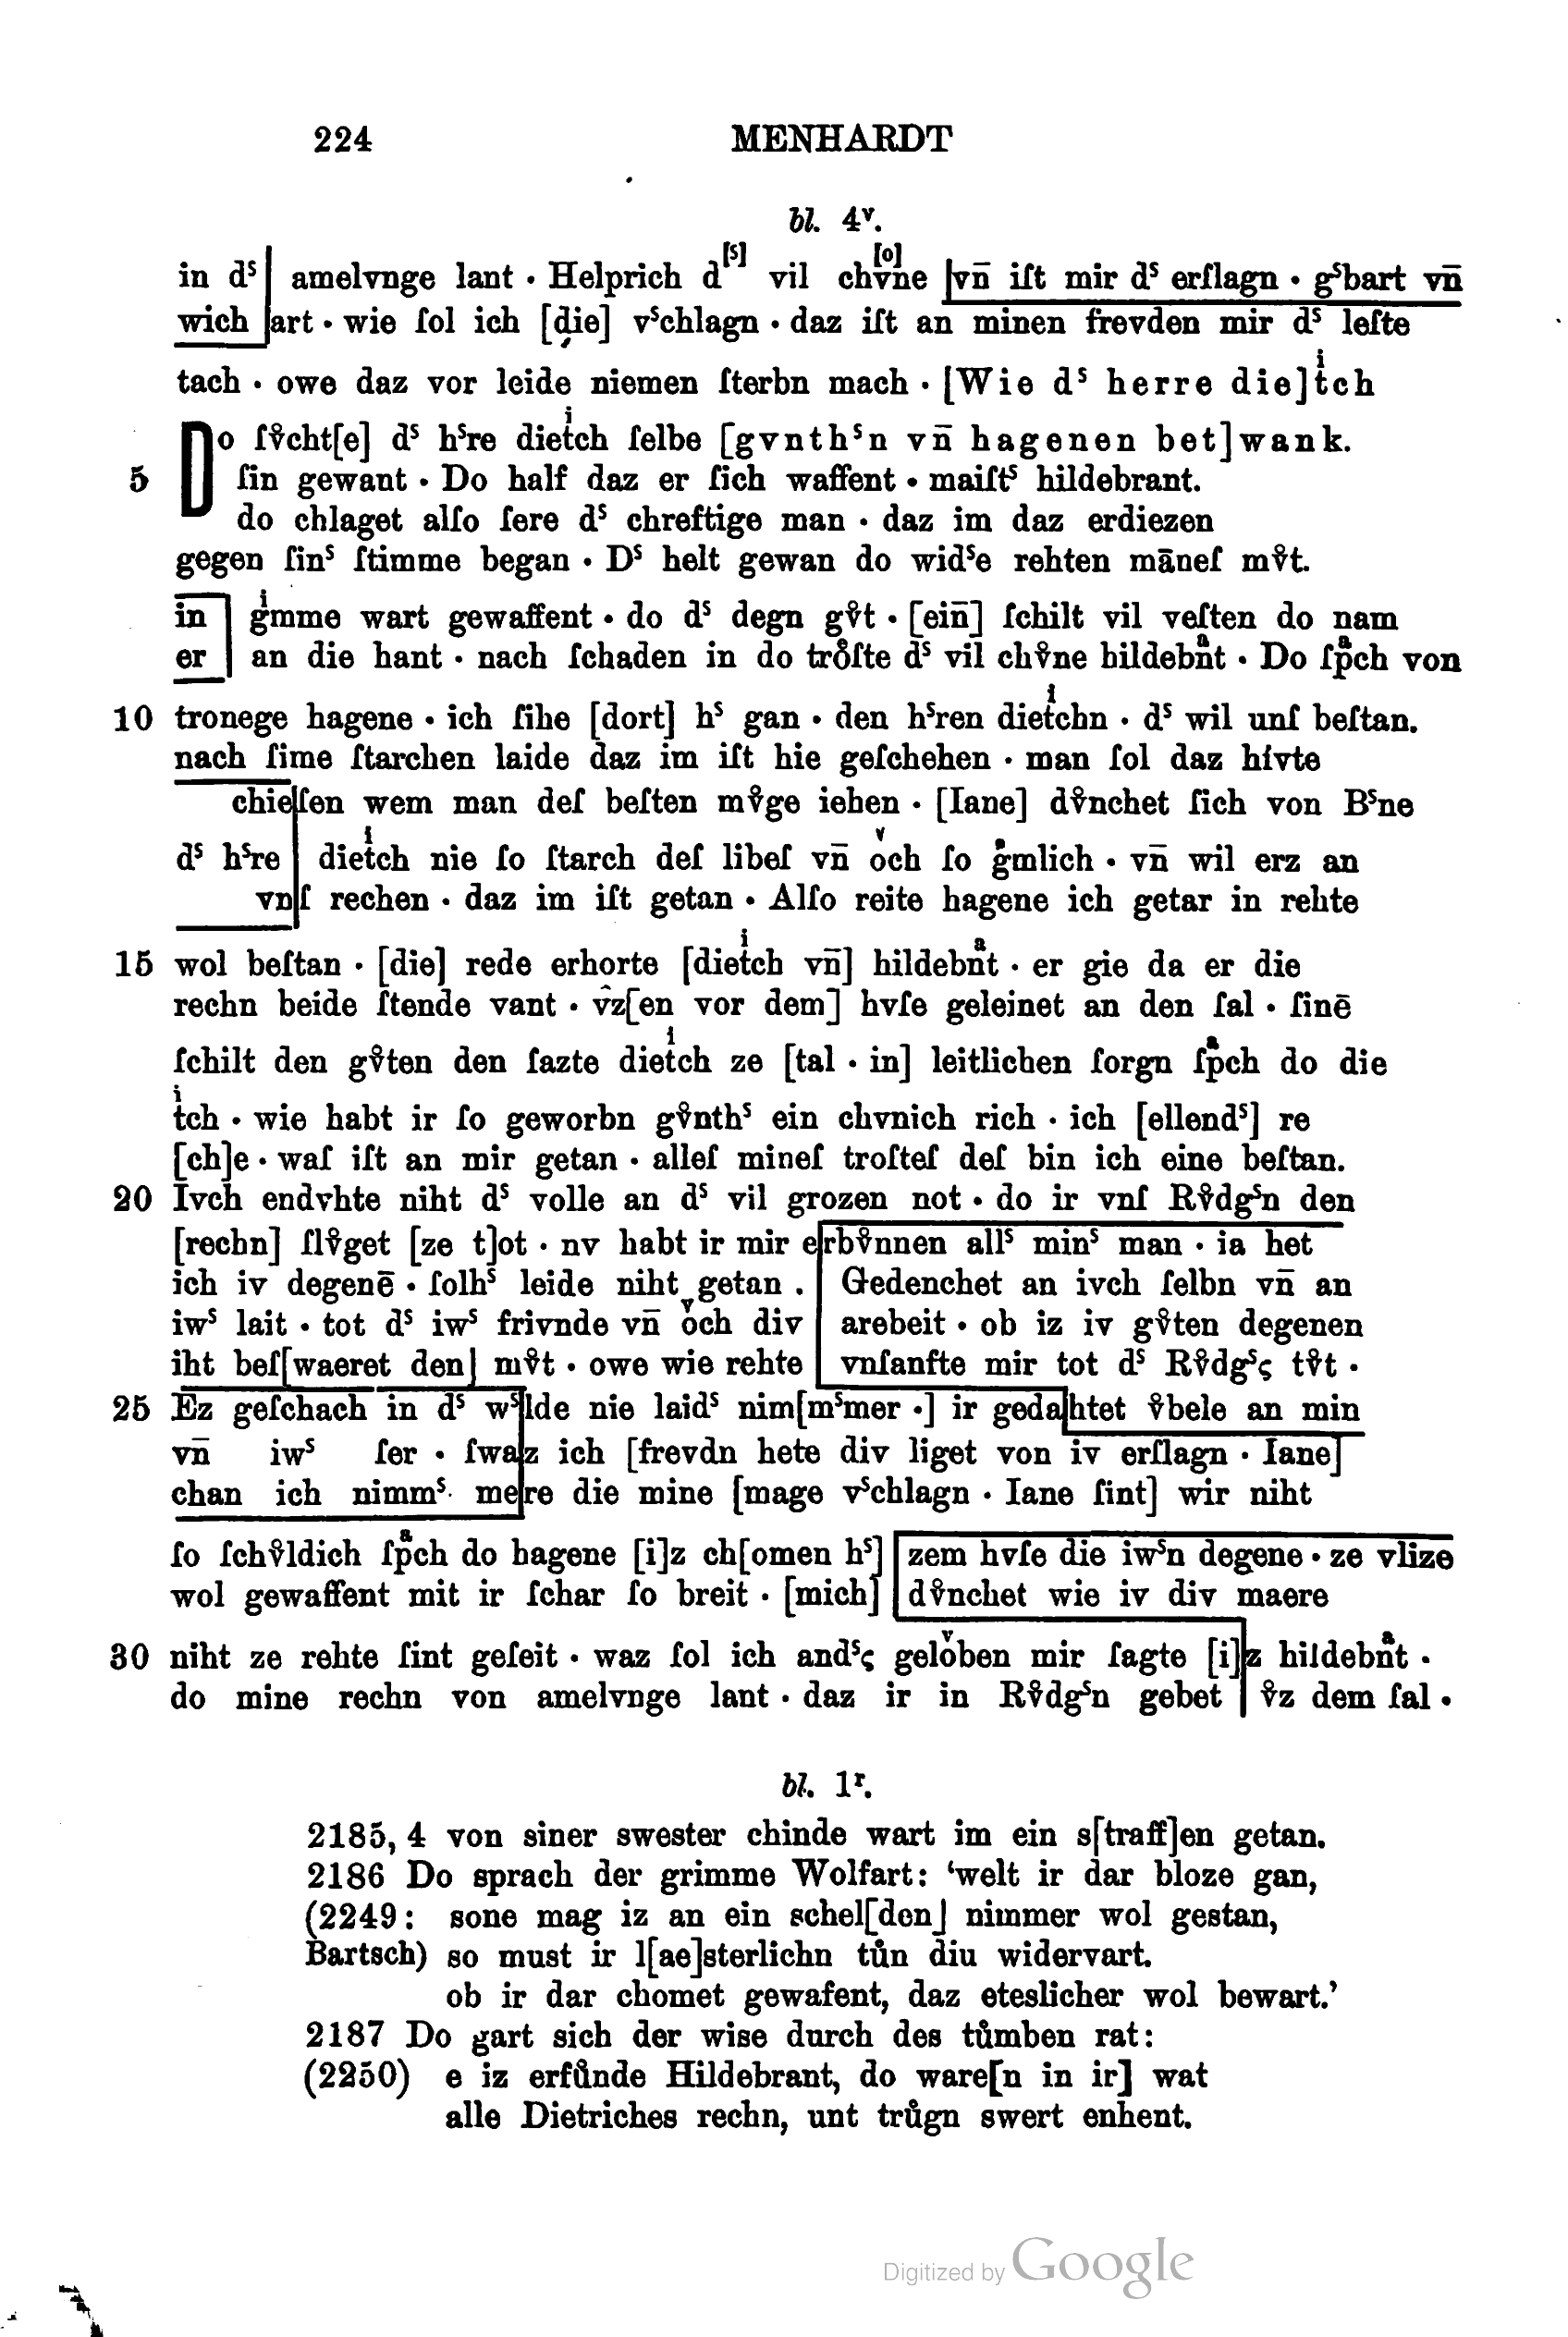 224 MENHARDT
bl. 4ᵛ.
in dˢ amelvnge lant · Helprich d[ˢ] vil chv[ͦ]ne vn̄ iſt mir dˢ erſlagn · gˢbart vn̄
wich art · wie ſol ich [die] vˢchlagn · daz iſt an minen frevden mir dˢ leſte
tach · owe daz vor leide niemen ſterbn mach · [Wie dˢ herre die]tͥch
Do ſv̊cht[e] dˢ hˢre dietͥch ſelbe [gvnthˢn vn̄ hagenen bet]wank.
5 ſin gewant · Do half daz er ſich waffent · maiſtˢ hildebrant.
do chlaget alſo ſere dˢ chreftige man · daz im daz erdiezen
gegen ſinˢ ſtimme began · Dˢ helt gewan do widˢe rehten māneſ mv̊t.
in gͥmme wart gewaffent · do dˢ degn gv̊t · [ein̄] ſchilt vil veſten do nam
er an die hant · nach ſchaden in do tro̊ſte dˢ vil chv̊ne hildebnͣt · Do ſpͣch von
10 tronege hagene · ich ſihe [dort] hˢ gan · den hˢren dietͥchn · dˢ wil unſ beſtan.
nach ſime ſtarchen laide daz im iſt hie geſchehen · man ſol daz hívte
chieſen wem man deſ beſten mv̊ge iehen · [Iane] dv̊nchet ſich von Bˢne
dˢ hˢre dietͥch nie ſo ſtarch deſ libeſ vn̄ oͮch ſo gͥmlich · vn̄ wil erz an
vnſ rechen · daz im iſt getan · Alſo reite hagene ich getar in rehte
15 wol beſtan · [die] rede erhorte [dietͥch vn̄] hildebnͣt · er gie da er die
rechn beide ſtende vant · v̂z[en vor dem] hvſe geleinet an den ſal · ſinē
ſchilt den gv̊ten den ſazte dietͥch ze [tal · in] leitlichen ſorgn ſpͣch do die
tͥch · wie habt ir ſo geworbn gv̊nthˢ ein chvnich rich · ich [ellendˢ] re
[ch]e · waſ iſt an mir getan · alleſ mineſ troſteſ deſ bin ich eine beſtan.
20 Ivch endvhte niht dˢ volle an dˢ vil grozen not · do ir vnſ Rv̊dgˢn den
[rechn] ſlv̊get [ze t]ot · nv habt ir mir erbv̊nnen allˢ minˢ man · ia het
ich iv degenē · ſolhˢ leide niht getan . Gedenchet an ivch ſelbn vn̄ an
iwˢ lait · tot dˢ iwˢ frivnde vn̄ oͮch div arebeit · ob iz iv gv̊ten degenen
iht beſ[waeret den] mv̊t · owe wie rehte vnſanfte mir tot dˢ Rv̊dgˢς tv̊t ·
25 Ez geſchach in dˢ wˢlde nie laidˢ nim[mˢmer ·] ir gedahtet v̊bele an min
vn̄ iwˢ ſer · ſwaz ich [frevdn hete div liget von iv erſlagn · Iane]
chan ich nimmˢ mere die mine [mage vˢchlagn · Iane ſint] wir niht
ſo ſchv̊ldich ſpͣch do hagene [i]z ch[omen hˢ] zem hvſe die iwˢn degene · ze vlize
wol gewaffent mit ir ſchar ſo breit · [mich] dv̊nchet wie iv div maere
30 niht ze rehte ſint geſeit · waz ſol ich andˢς geloͮben mir ſagte [i]z hildebnͣt ·
do mine rechn von amelvnge lant · daz ir in Rv̊dgˢn gebet v̊z dem ſal ·
bl. 1ʳ.
2185, 4 von siner swester chinde wart im ein s[traff]en getan.
2186 Do sprach der grimme Wolfart: ‘welt ir dar bloze gan,
(2249: sone mag iz an ein schel[den] nimmer wol gestan,
Bartsch) so must ir l[ae]sterlichn tůn diu widervart.
ob ir dar chomet gewafent, daz eteslicher wol bewart.’
2187 Do gart sich der wise durch des tůmben rat:
(2250) e iz erfůnde Hildebrant, do ware[n in ir] wat
alle Dietriches rechn, unt trůgn swert enhent.
Digitized by Google